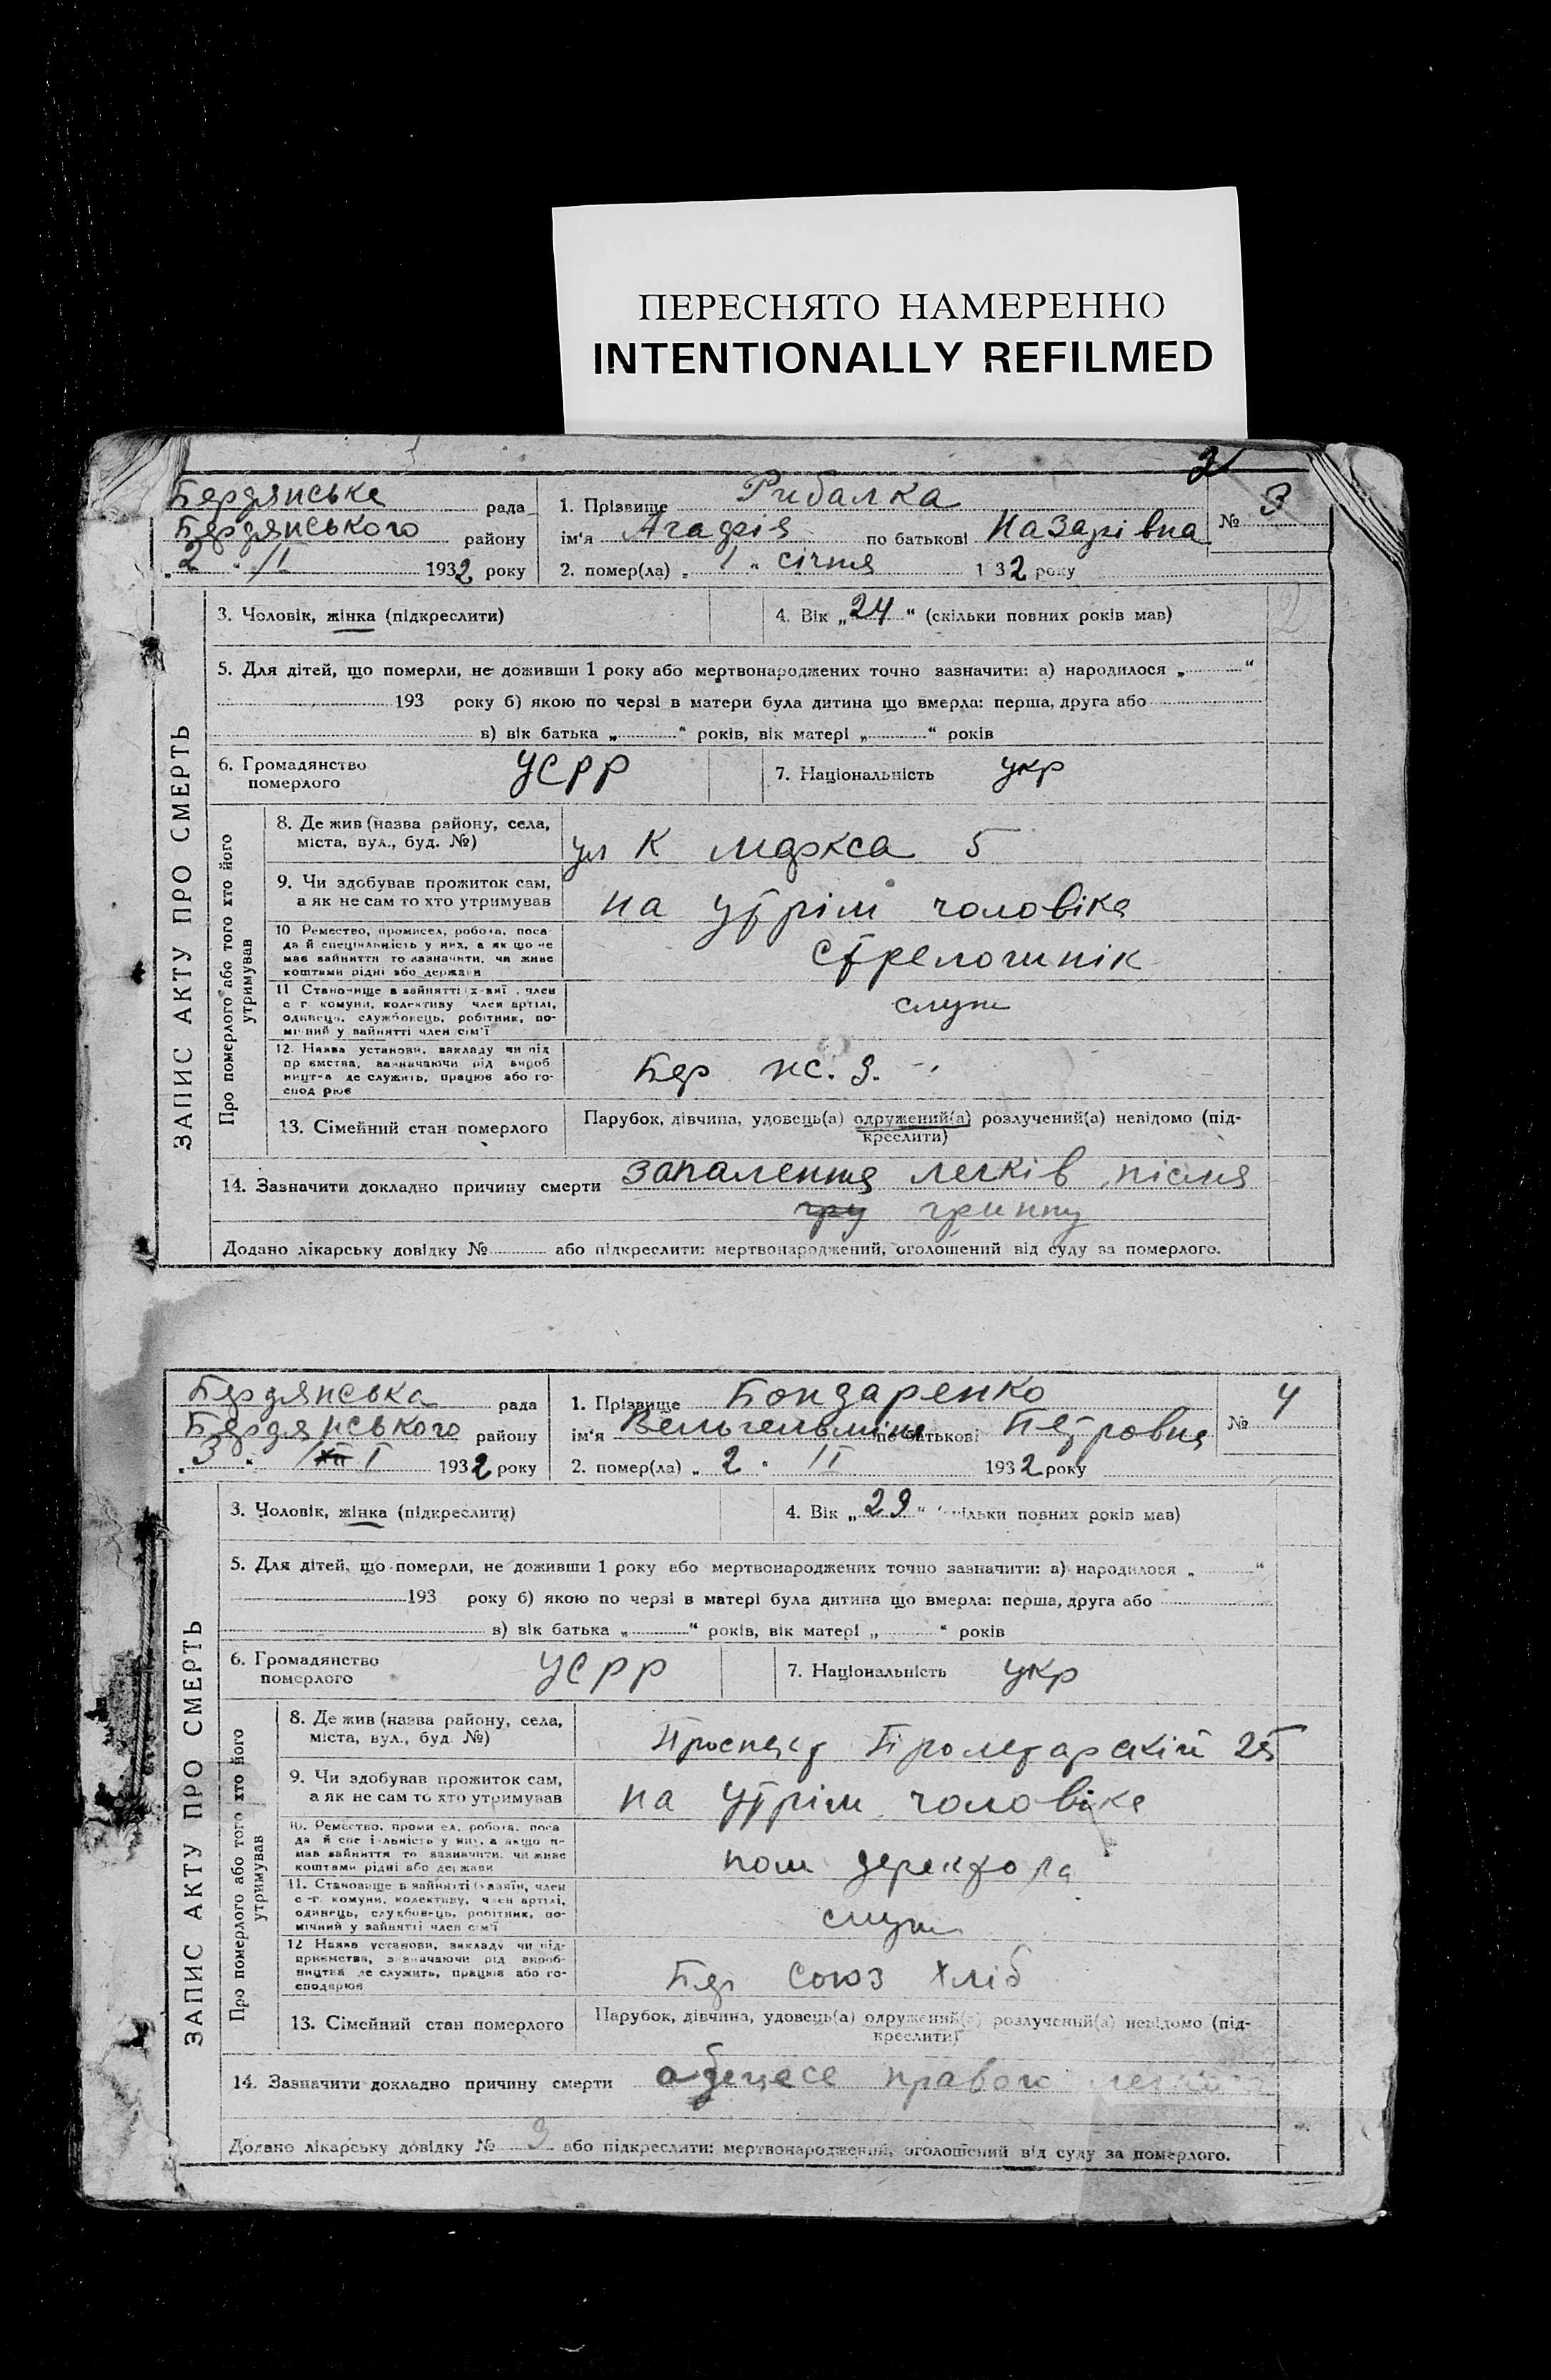 ПЕРЕСНЯТО НАМЕРЕННО
INTENTIONALLY REFILMED
2
Бердянське рада 1. Прізвище Рибалка № 3
Бердянського району ім'я Агафія по батькові Назарівна
„2 " /I 1932 року 2. помер(ла) „ 1 " січня 1 32 року
ЗАПИС АКТУ ПРО СМЕРТЬ
3. Чоловік, жінка (підкреслити) 4. Вік „24" (скільки повних років мав)
5. Для дітей, що померли, не доживши 1 року або мертвонароджених точно зазначити: а) народилося „ "
193 року б) якою по черзі в матери була дитина що вмерла: перша, друга або
в) вік батька „ " років, вік матері „ " років
6. Громадянство померлого УСРР 7. Національність укр
Про померлого або того хто його утримував
8. Де жив (назва району, села, міста, вул., буд. №) ул К Маркса 5
9. Чи здобував прожиток сам, а як не сам то хто утримував на утрім чоловіка
10 Ремество, промисел, робота, поса да й спеціяльність у них, а як що не має зайняття то зазначити, чи живе коштами рідні або держави
11 Становище в зайнятті член с г комуни, колективу член артілі, одинець, службовець, робітник, помічний у зайнятті член сім'ї служ
12. Назва установи, закладу чи під пр ємства, зазначаючи рід вироб ницт-а де служить, працює або госпoд рює Бер
13. Сімейний стан померлого Парубок, дівчина, удовець(а) одружений(а) розлучений(а) невідомо (під-
креслити)
14. Зазначити докладно причину смерти запалення легків після
гру грипну
Додано лікарську довідку № або підкреслити: мертвонароджений, оголошений від суду за померлого.
Бердянська рада 1. Прізвище Бондаренко № 4
Бердянського району ім'я Вельгельміна по батькові Петровна
„3 " I 1932 року 2. помер(ла) „ 2 " /I 1932 року
ЗАПИС АКТУ ПРО СМЕРТЬ
3. Чоловік, жінка (підкреслити) 4. Вік „29" скільки повних років мав)
5. Для дітей, що померли, не доживши 1 року або мертвонароджених точно зазначити: а) народилося „ "
193 року б) якою по черзі в матері була дитина що вмерла: перша, друга або
в) вік батька „ " років, вік матері „ " років
6. Громадянство померлого УСРР 7. Національність укр
Про померлого або того хто його утримував
8. Де жив (назва району, села, міста, вул., буд №) Проспект Пролетарскій 25
9. Чи здобував прожиток сам, а як не сам то хто утримував на утрім чоловіка
10. Ремество, робота, поса да й у них, а якщо не має зайняття то зазначити, чи живе коштами рідні або держави пом деректора
11. Становище в зайнятті член с-г. комуни, колективу, член артілі, одинець, службовець, робітник, помічний у зайнятті член сім'ї служ
12 Назва установи, закладу чи підприємства, зазначаючи рід виробництва де служить, працює або господарює Бер Союз Хліб
13. Сімейний стан померлого Парубок, дівчина, удовець(а) одружений(а) розлучений(а) невідомо (під-
креслити)
14. Зазначити докладно причину смерти абецесе правого
Додано лікарську довідку № 9 або підкреслити: мертвонароджений, оголошений від суду за померлого.